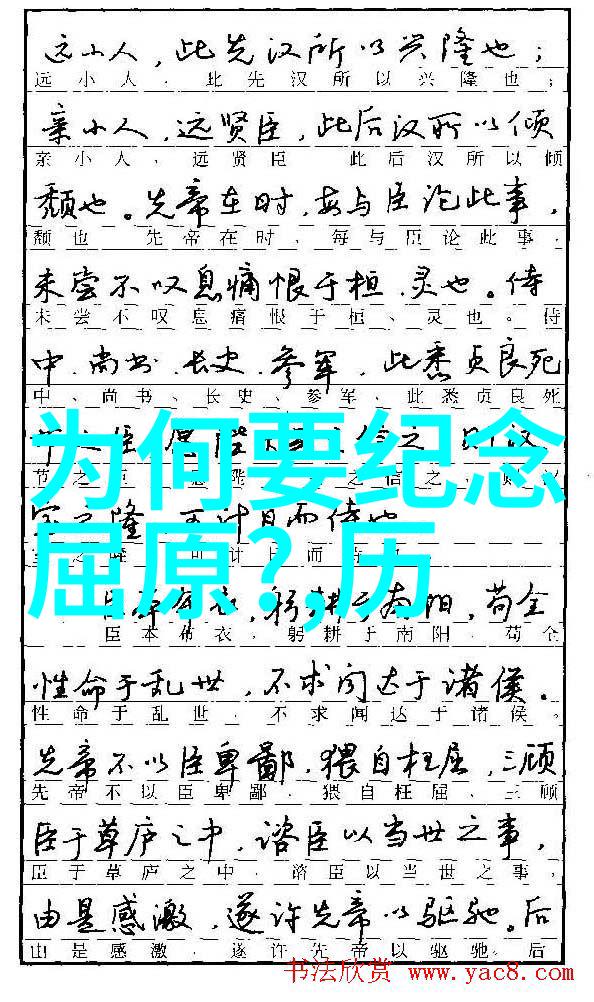 远小人，此先汉所以兴隆也；
远小人，此先汉所以兴隆也；
亲小人，远贤臣，此后汉所以倾
亲小人，远贤臣 此后汉所以倾
颓也。先帝在时，每与臣论此事，
颓也 先帝在时，每与臣论此事，
未尝不叹息痛恨于桓、灵也。侍
未尝不叹息痛恨于桓、灵也。侍
中、尚书、长史、参军，此悉贞良死
中、尚书、长史、参军，此悉贞良死
为何要纪念
屈原?,历
之隆 可计日而待也
臣本布衣，躬耕于南阳，苟全
臣本布衣，躬耕于南阳，苟全
性命于乱世，不求闻达于诸侯。
性命于乱世，不求闻达于诸侯。
先帝不以臣卑鄙，猥自枉屈，三顾
先帝不以臣卑鄙，猥自枉屈、三顾
臣于草庐之中，谘臣以当世之事，
臣于草庐之中，谘臣以当世之事，
由是感激，遂许先帝以驱驰。后
由是感激，遂许先帝以驱驰。后
书法欣赏 www.yac8.com